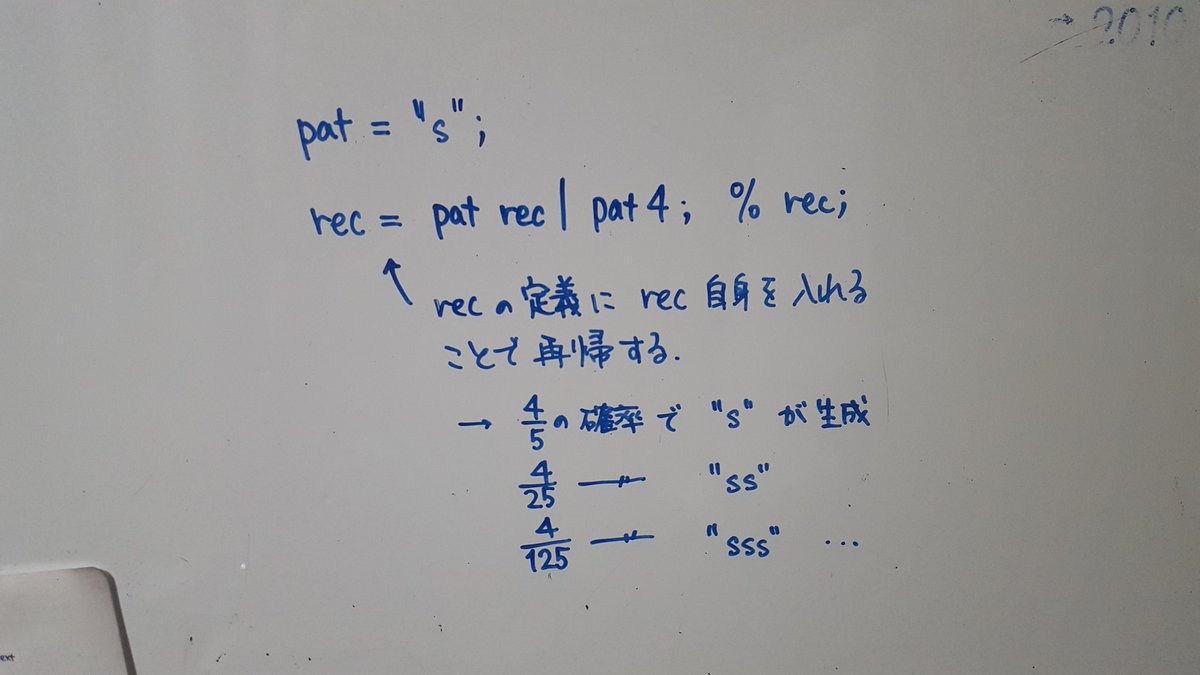 → 2010
pat = "s";
rec = pat rec | pat 4; % rec;
recの定義に rec 自身を入れる
ことで再帰する.
→ 4/5 の確率で "s" が生成
4/25 —〃— "ss"
4/125 —〃— "sss" …
ext